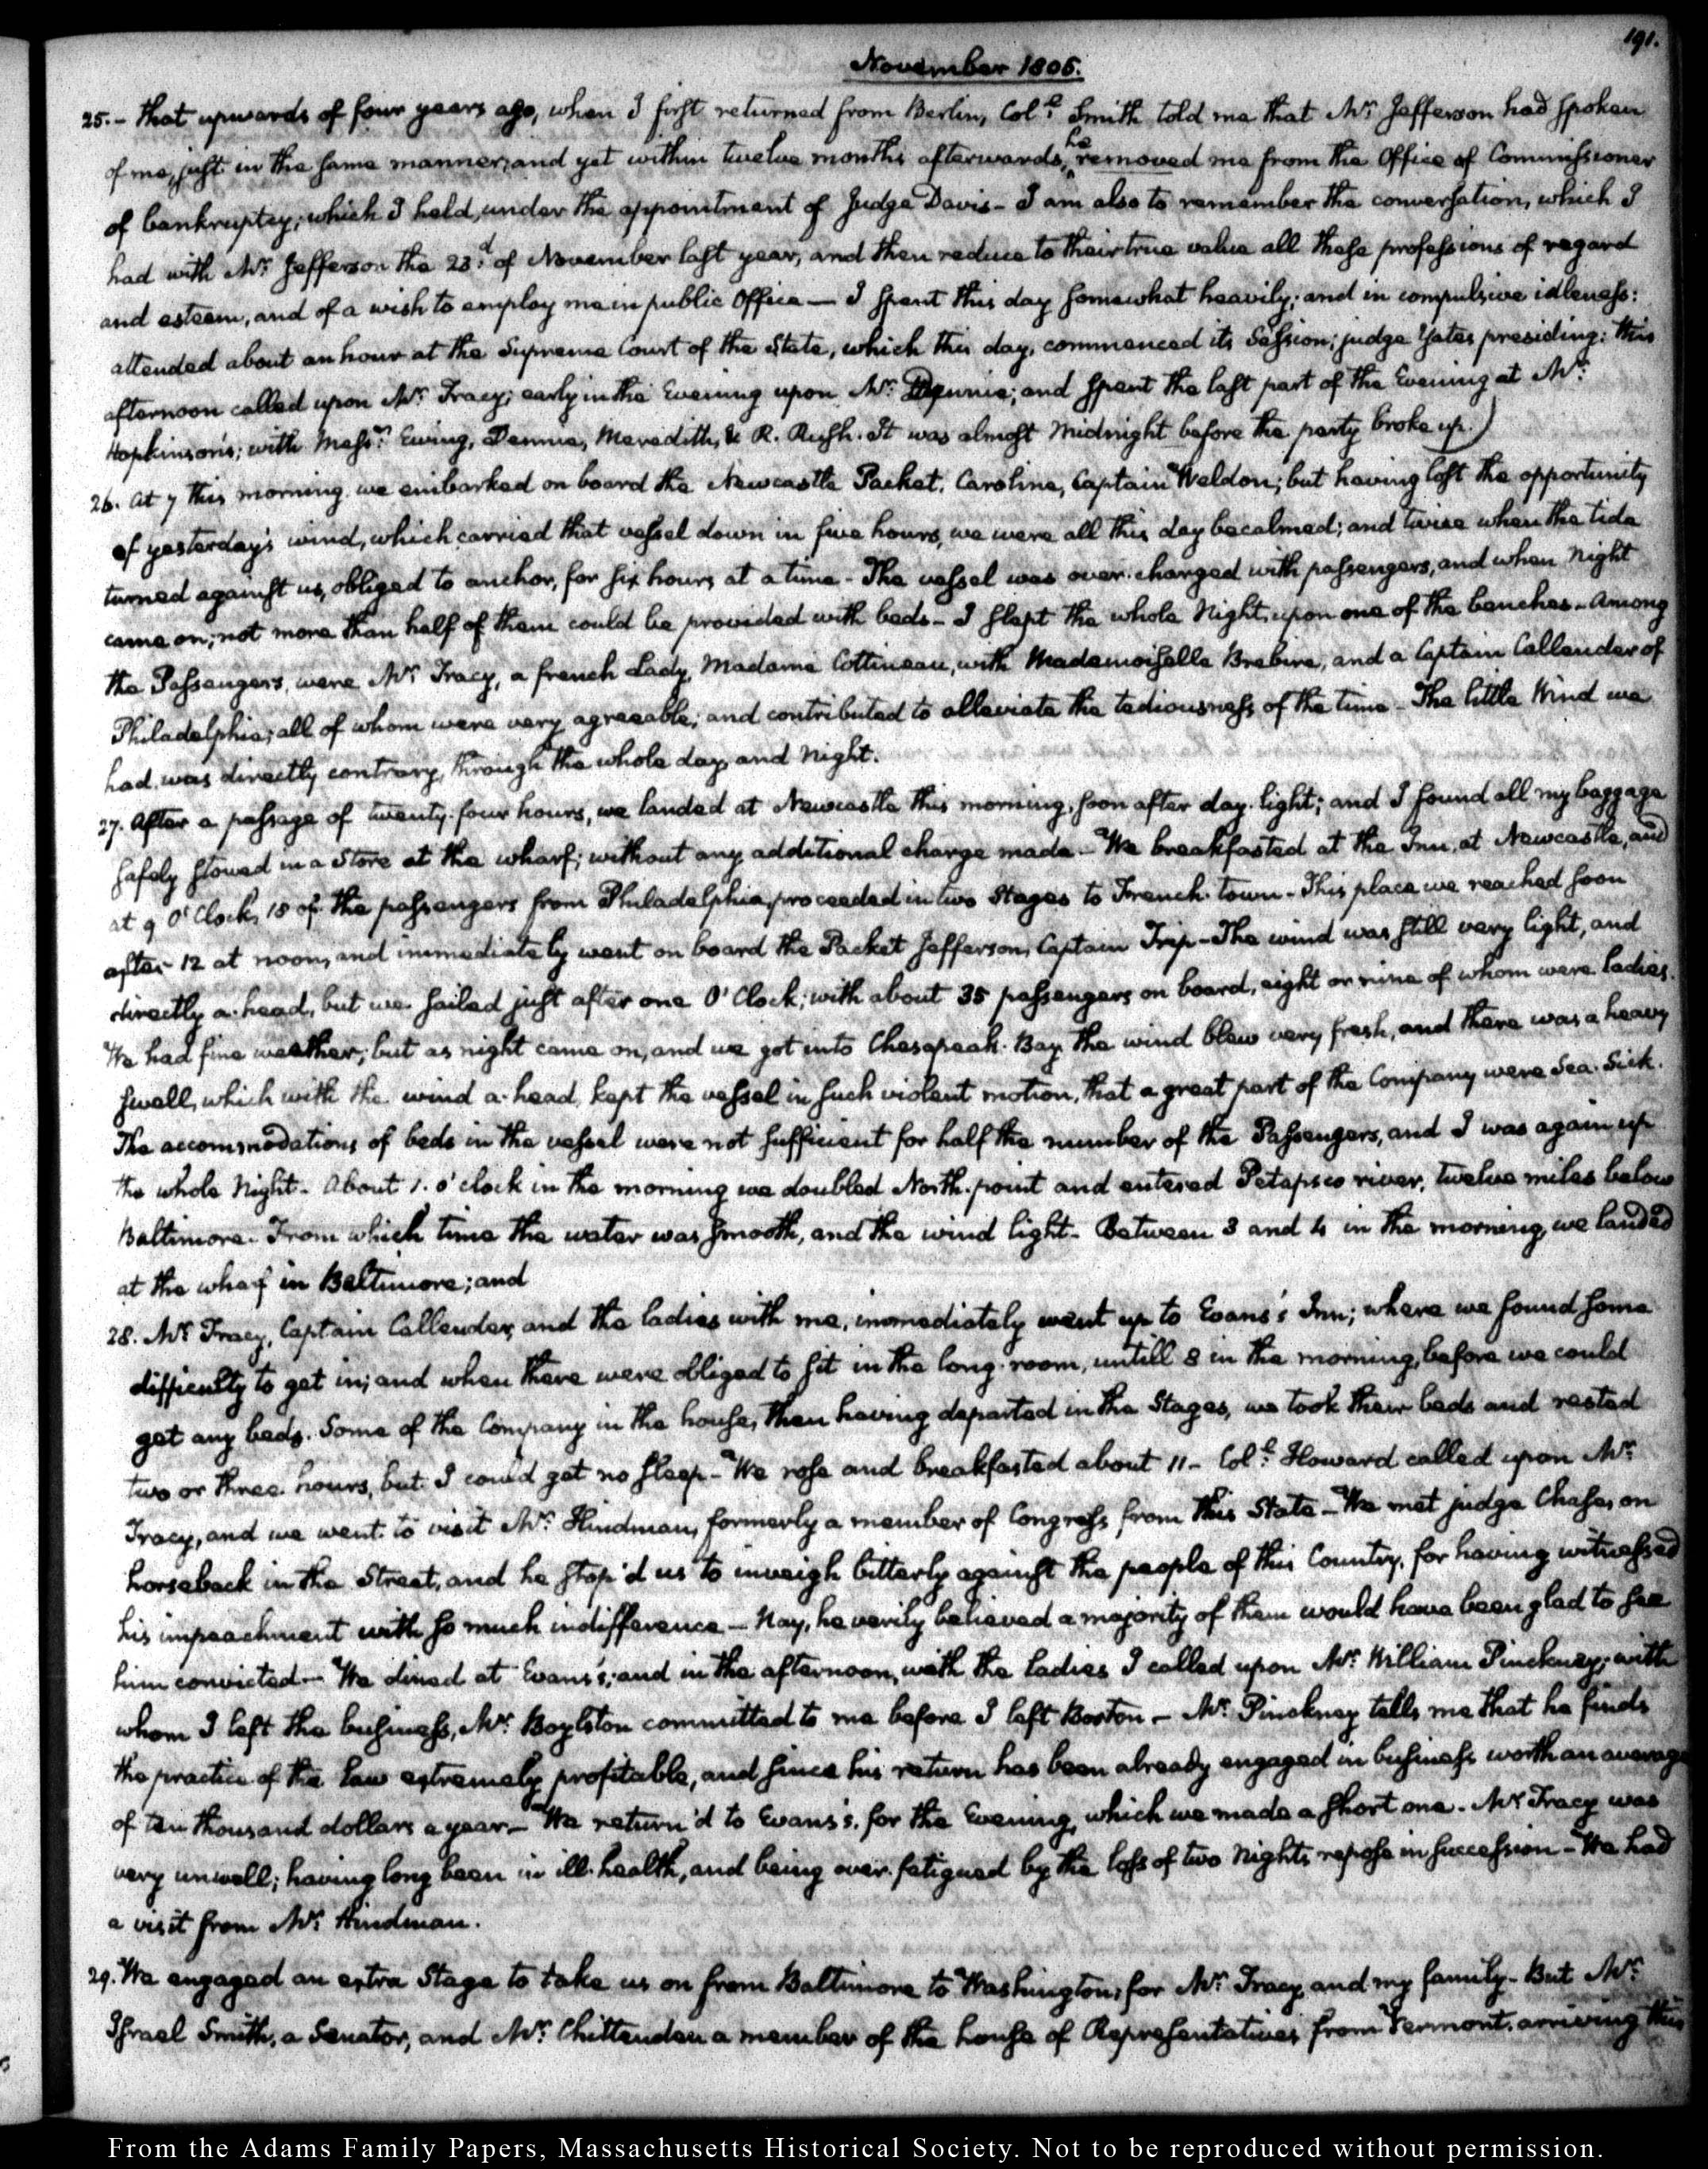 191.
November 1805.
25.- that upwards of four years ago, when I first returned from Berlin, Coll. Smith told me that Mr. Jefferson had spoken
of me, just in the same manner; and yet within twelve months afterwards, he removed me from the Office of Commissioner
of bankruptcy; which I held, under the appointment of Judge Davis- I am also to remember the conversation, which I
had with Mr. Jefferson the 23d. of November last year, and then reduce to their true value all these professions of regard
and esteem, and of a wish to employ me in public Office — I spent this day somewhat heavily; and in compulsive idleness:
attended about an hour at the Supreme Court of the State, which this day, commenced its Session; judge Yates presiding: this
afternoon called upon Mr. Tracy; early in the Evening upon Mr. Dennie; and spent the last part of the Evening at Mr.
Hopkinson's; with Messrs. Ewing, Dennie, Meredith, & R. Rush. It was almost midnight before the party broke up.)
26. At 7 this morning we embarked on board the Newcastle Packet, Carolina, Captain Weldon; but having lost the opportunity
of yesterday's wind, which carried that vessel down in five hours, we were all this day becalmed; and twice when the tide
turned against us, obliged to anchor, for six hours at a time - The vessel was over-charged with passengers, and when night
came on, not more than half of them could be provided with beds - I slept the whole Night upon one of the benches - Among
the Passengers, were Mr. Tracy, a french Lady, Madame Cottineau, with Mademoiselle Brebire, and a Captain Callender of
Philadelphia; all of whom were very agreeable; and contributed to alleviate the tediousness of the time - The little Wind we
had, was directly contrary, through the whole day, and Night.
27. After a passage of twenty-four hours, we landed at Newcastle this morning, soon after day-light; and I found all my baggage
safely stowed in a Store at the wharf; without any additional charge made - We breakfasted at the Inn, at Newcastle, and
at 9 O'Clock, 18 of the passengers from Philadelphia, proceeded in two Stages to French-town - This place we reached soon
after 12 at noon, and immediately went on board the Packet Jefferson, Captain Trip - The wind was still very light, and
directly a-head, but we sailed just after one O'Clock; with about 35 passengers on board, eight or nine of whom were ladies.
We had fine weather; but as night came on, and we got into Chesapeak-Bay the wind blew very fresh, and there was a heavy
swell, which with the wind a-head, kept the vessel in such violent motion, that a great part of the Company were Sea-Sick.
The accommodations of beds in the vessel were not sufficient for half the number of the Passengers, and I was again up
the whole Night - About 1. o'clock in the morning we doubled North-point and entered Petapsco river, twelve miles below
Baltimore - From which time the water was smooth, and the wind light - Between 3 and 4 in the morning, we landed
at the wharf in Baltimore; and
28. Mr. Tracy, Captain Callender, and the ladies with me, immediately went up to Evans's Inn; where we found some
difficulty to get in; and when there were obliged to sit in the long-room, untill 8 in the morning, before we could
get any beds. Some of the Company in the house, then having departed in the Stages, we took their beds and rested
two or three hours, but I could get no sleep - We rose and breakfasted about 11 - Coll. Howard called upon Mr.
Tracy, and we went to visit Mr. Hindman, formerly a member of Congress from this State - We met judge Chase, on
horseback in the Street, and he stop'd us to inveigh bitterly against the people of this Country, for having witnessed
his impeachment with so much indifference - Nay, he verily believed a majority of them would have been glad to see
him convicted - We dined at Evans's; and in the afternoon, with the ladies I called upon Mr. William Pinckney; with
whom I left the business, Mr. Boylston committed to me before I left Boston - Mr. Pinckney tells me that he finds
the practice of the Law extremely profitable, and since his return has been already engaged in business worth an average
of ten thousand dollars a year - We return'd to Evans's, for the Evening, which we made a short one - Mr. Tracy was
very unwell; having long been in ill-health, and being over-fatigued by the loss of two Nights repose in succession - We had
a visit from Mr. Hindman.
29. We engaged an extra Stage to take us on from Baltimore to Washington, for Mr. Tracy and my family - But Mr.
Israel Smith, a Senator, and Mr. Chittenden a member of the house of Representatives from Vermont, arriving this
From the Adams Family Papers, Massachusetts Historical Society. Not to be reproduced without permission.